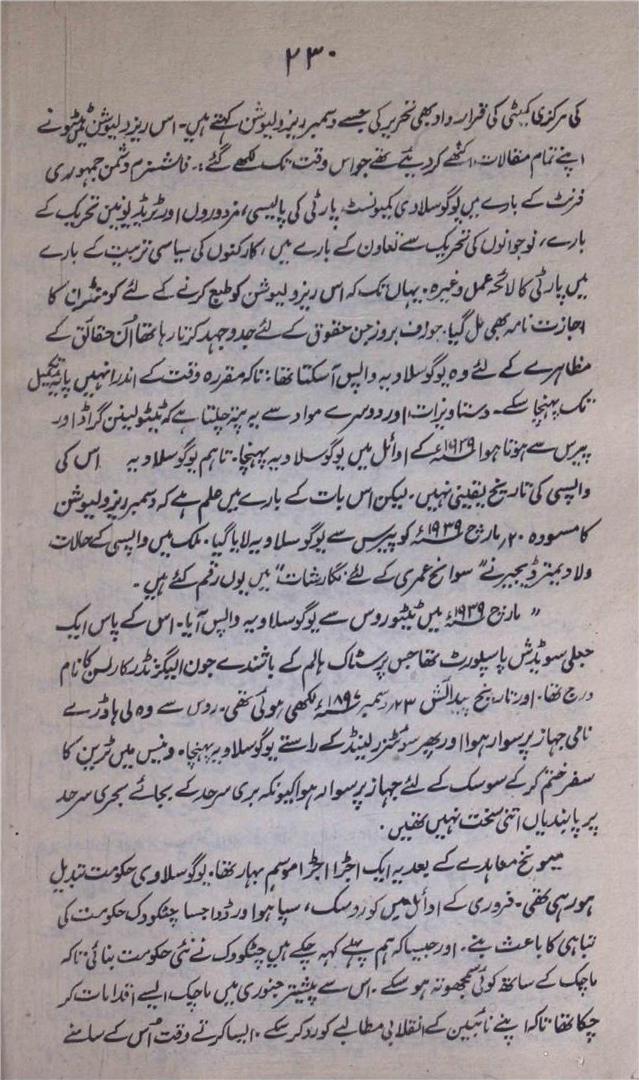 ۲۳۰
کی مرکزی کمیٹی کی قرار داد بھی تحریر کی جسے دسمبر ریزولیوشن کہتے ہیں۔ اس ریزولیوشن میں ٹیٹو نے
اپنے تمام مقالات اکٹھے کر دیئے تھے جو اس وقت تک لکھے گئے:۔ فاشنزم دشمن جمہوری
فرنٹ کے بارے میں یوگوسلاوی کمیونسٹ پارٹی کی پالیسی، مزدوروں اور ٹریڈ یونین تحریک کے
بارے، نوجوانوں کی تحریک سے تعاون کے بارے میں، کارکنوں کی سیاسی تربیت کے بارے
میں پارٹی کا لائحہ عمل وغیرہ۔ یہاں تک کہ اس ریزولیوشن کو طبع کرنے کے لئے کومنٹران کا
اجازت نامہ بھی مل گیا۔ جوزف بروز جن حقوق کے لئے جدوجہد کرتا رہا تھا اُن حقائق کے
مظاہرے کے لئے وہ یوگوسلاویہ واپس آسکتا تھا: تاکہ مقررہ وقت کے اندر انہیں پایۂ تکمیل
تک پہنچا سکے۔ دستاویزات اور دوسرے مواد سے یہ پتہ چلتا ہے کہ ٹیٹو لینن گراڈ اور
پیرس سے ہوتا ہوا ۱۹۳۹ء کے اوائل میں یوگوسلاویہ پہنچا۔ تاہم یوگوسلاویہ اس کی
واپسی کی تاریخ یقینی نہیں۔ لیکن اس بات کے بارے میں علم ہے کہ دسمبر ریزولیوشن
کا مسودہ ۲۰ مارچ ۱۹۳۹ء کو پیرس سے یوگوسلاویہ لایا گیا۔ ملک میں واپسی کے حالات
ولادیمیر ڈیجیر نے "سوانح عمری کے لئے نگارشات" میں یوں رقم کئے ہیں۔
"مارچ ۱۹۳۹ء میں ٹیٹو روس سے یوگوسلاویہ واپس آیا۔ اس کے پاس ایک
جعلی سویڈش پاسپورٹ تھا جس پر سٹاک ہالم کے باشندے جون الیگزنڈر کارلسن کا نام
درج تھا۔ اور تاریخ پیدائش ۲۳ دسمبر ۱۸۹۷ء لکھی ہوئی تھی۔ روس سے وہ لی ہاؤرے
نامی جہاز پر سوار ہوا اور پھر سوئٹزرلینڈ کے راستے یوگوسلاویہ پہنچا۔ وینس میں ٹرین کا
سفر ختم کر کے سوسک کے لئے جہاز پر سوار ہوا کیونکہ بری سرحد کے بجائے بحری سرحد
پر پابندیاں اتنی سخت نہیں تھیں۔
میونخ معاہدے کے بعد یہ ایک اجڑا اجڑا موسم بہار تھا۔ یوگوسلاوی حکومت تبدیل
ہو رہی تھی۔ فروری کے اوائل میں کوردسک، سپاہو اور ڈوا جسا چٹکووک حکومت کی
تباہی کا باعث بنے۔ اور جیسا کہ ہم پہلے کہہ چکے ہیں چٹکووک نے نئی حکومت بنائی تاکہ
ماچک کے ساتھ کوئی سمجھوتہ ہو سکے۔ اس سے پیشتر جنوری میں ماچک ایسے اقدامات کر
چکا تھا تاکہ اپنے نائبین کے انقلابی مطالبے کو رد کر سکے۔ ایسا کرتے وقت اُس کے سامنے